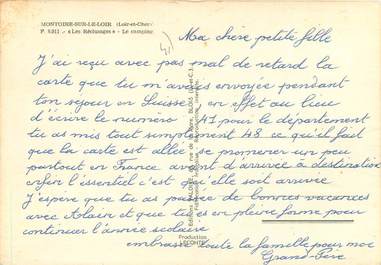 MONTOIRE-SUR-LE-LOIR (Loir-et-Cher)
F 5311 - « Les Reclusages » - Le camping
41
Ma chère petite fille
J'ai reçu avec pas mal de retard la
carte que tu m'avais envoyée pendant
ton séjour en Suisse, en effet au lieu
d'écrire le numéro 41 pour le département
tu as mis tout simplement 48 ce qui fait
que la carte est allée se promener un peu
partout en France avant d'arrivée à destination
enfin l'essentiel c'est qu'elle soit arrivée
j'espère que tu as passée de bonnes vacances
avec Alain et que tu es en pleine forme pour
continuer l'année scolaire
embrasse toute la famille pour moi
Grand-Père
Production
LECONTE